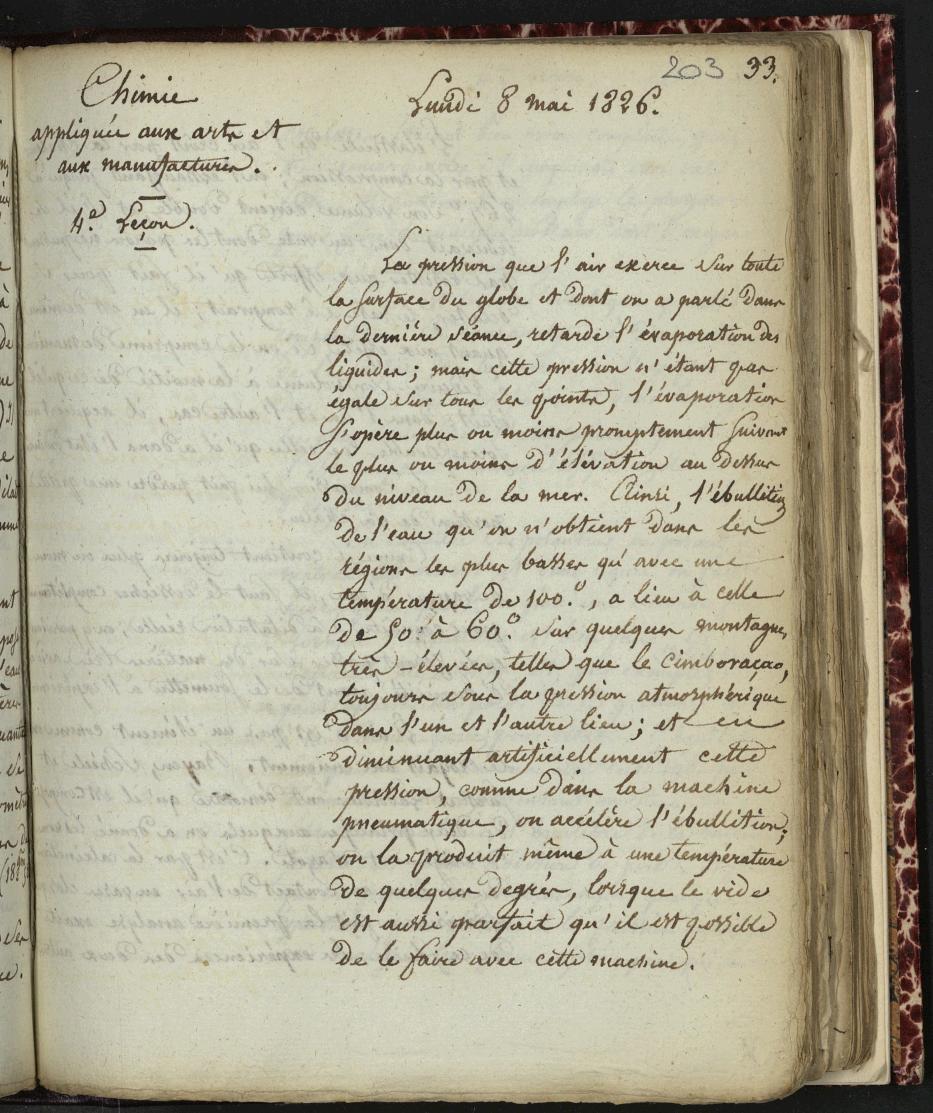 203 33.
Chimie
appliquée aux arts et
aux manufactures.
4.e Leçon.
Lundi 8 mai 1826.
La pression que l'air exerce sur toute
la surface du globe et dont on a parlé dans
la dernière séance, retarde l'évaporation des
liquides ; mais cette pression n'étant pas
égale sur tous les points, l'évaporation
s'opère plus ou moins promptement suivant
le plus ou moins d'élévation au dessus
du niveau de la mer. Ainsi, l'ébullition
de l'eau qu'on n'obtient dans les
régions les plus basses qu'avec une
température de 100.°, a lieu à celle
de 50.° à 60.° sur quelques montagnes
très-élevées, telles que le cimboraçao,
toujours sous la pression atmosphérique
dans l'un et l'autre lieu ; et en
diminuant artificiellement cette
pression, comme dans la machine
pneumatique, on accélère l'ébullition ;
on la produit même à une température
de quelques degrés, lorsque le vide
est aussi parfait qu'il est possible
de le faire avec cette machine.